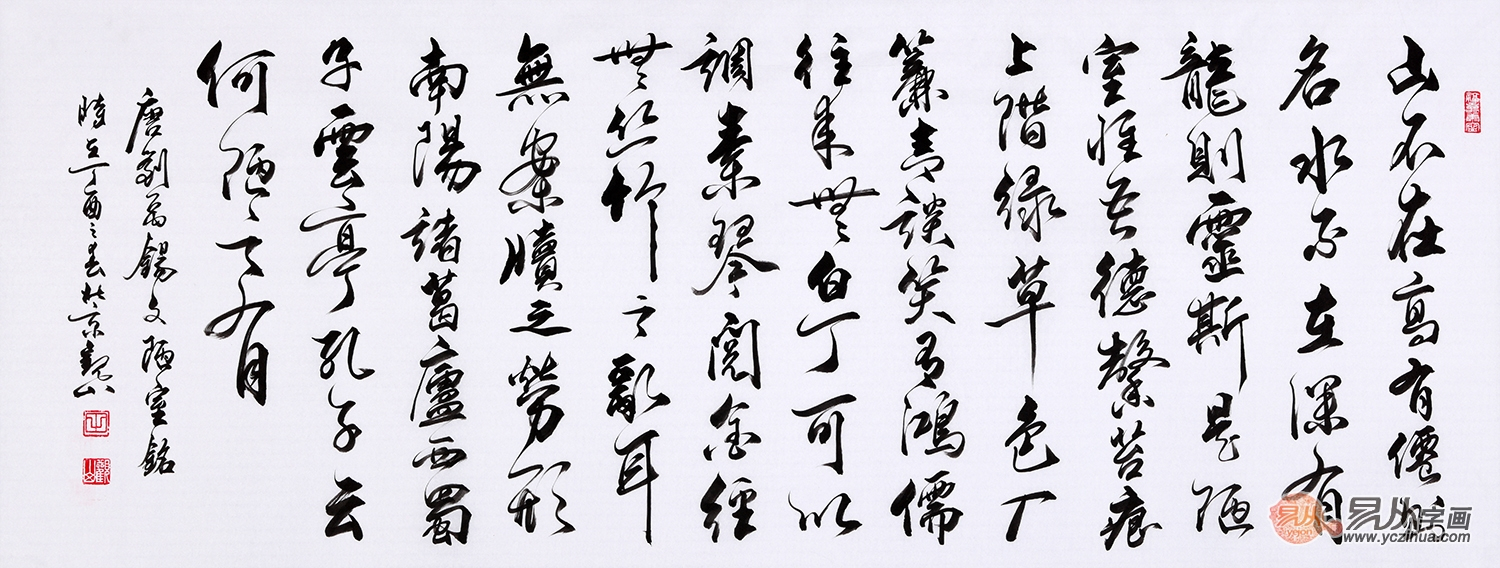 山不在高有僊則
名水不在深有
龍則靈斯是陋
室惟吾德馨苔痕
上階緑草色入
簾青談笑有鴻儒
往来無白丁可以
調素琴閲金經
無絲竹之亂耳
無案牘之勞形
南陽諸葛廬西蜀
子雲亭孔子云
何陋之有
唐劉禹錫文陋室銘
時在丁酉之春於京觀山
易从字画
www.yczihua.com